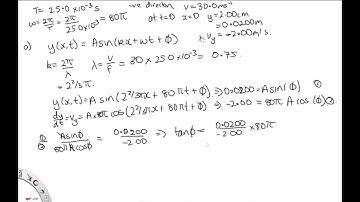 T = 25.0 x10⁻³s -ve direction v = 30.0 ms⁻¹
ω = 2π/T = 2π/25.0x10⁻³ = 80π at t=0 x=0 y = 2.00cm
= 0.0200m
& v_y = -2.00m/s.
a) y(x,t) = A sin(kx + ωt + ϕ)
k = 2π/λ λ = v/f = 30 x 25.0x10⁻³ = 0.75.
= 2²/3π
y(x,t) = A sin(2²/3πx + 80πt + ϕ) ⇒ 0.0200 = A sin(ϕ) ①
dy/dt = v_y = A x 80π cos(2²/3πx + 80πt + ϕ) ⇒ -2.00 = 80π A cos(ϕ) ②
①/② A sinϕ/80πA cosϕ = 0.0200/-2.00 ⇒ tanϕ = 0.0200/-2.00 x 80π